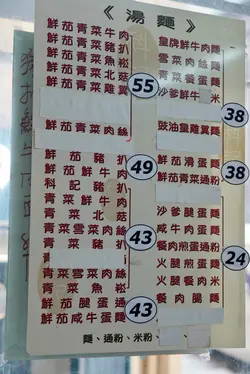 《湯麵》
鮮茄青菜鮮牛肉
鮮茄青菜豬扒
鮮茄青菜魚崧
鮮茄青菜北菇
鮮茄青菜雞翼
55
鮮茄青菜肉絲
鮮茄豬扒
49
科記豬扒
青菜鮮牛肉
青菜北菇
青菜雪菜肉絲
43
青菜豬扒
青菜青菜肉絲
青菜魚崧
鮮茄腿蛋通
43
鮮茄咸牛蛋麵
皇牌鮮牛肉麵
雪菜肉絲麵
青菜餐蛋麵
沙爹鮮牛 米
38
豉油皇雞翼麵
鮮茄滑蛋麵
38
鮮茄青菜通粉
沙爹腿蛋麵
咸牛煎蛋麵
餐肉煎蛋麵
24
火腿煎蛋麵
火腿餐蛋麵
餐肉腸麵
麵、通粉、米粉、